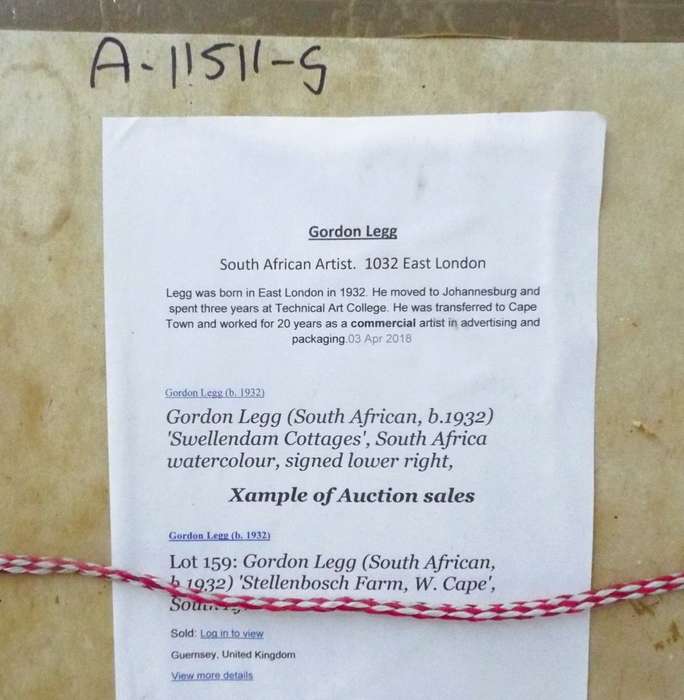 A-11511-G
Gordon Legg
South African Artist.  1032 East London
Legg was born in East London in 1932. He moved to Johannesburg and
spent three years at Technical Art College. He was transferred to Cape
Town and worked for 20 years as a commercial artist in advertising and
packaging.03 Apr 2018
Gordon Legg (b. 1932)
Gordon Legg (South African, b.1932)
'Swellendam Cottages', South Africa
watercolour, signed lower right,
Xample of Auction sales
Gordon Legg (b. 1932)
Lot 159: Gordon Legg (South African,
b.1932) 'Stellenbosch Farm, W. Cape',
Sold: Log in to view
Guernsey, United Kingdom
View more details